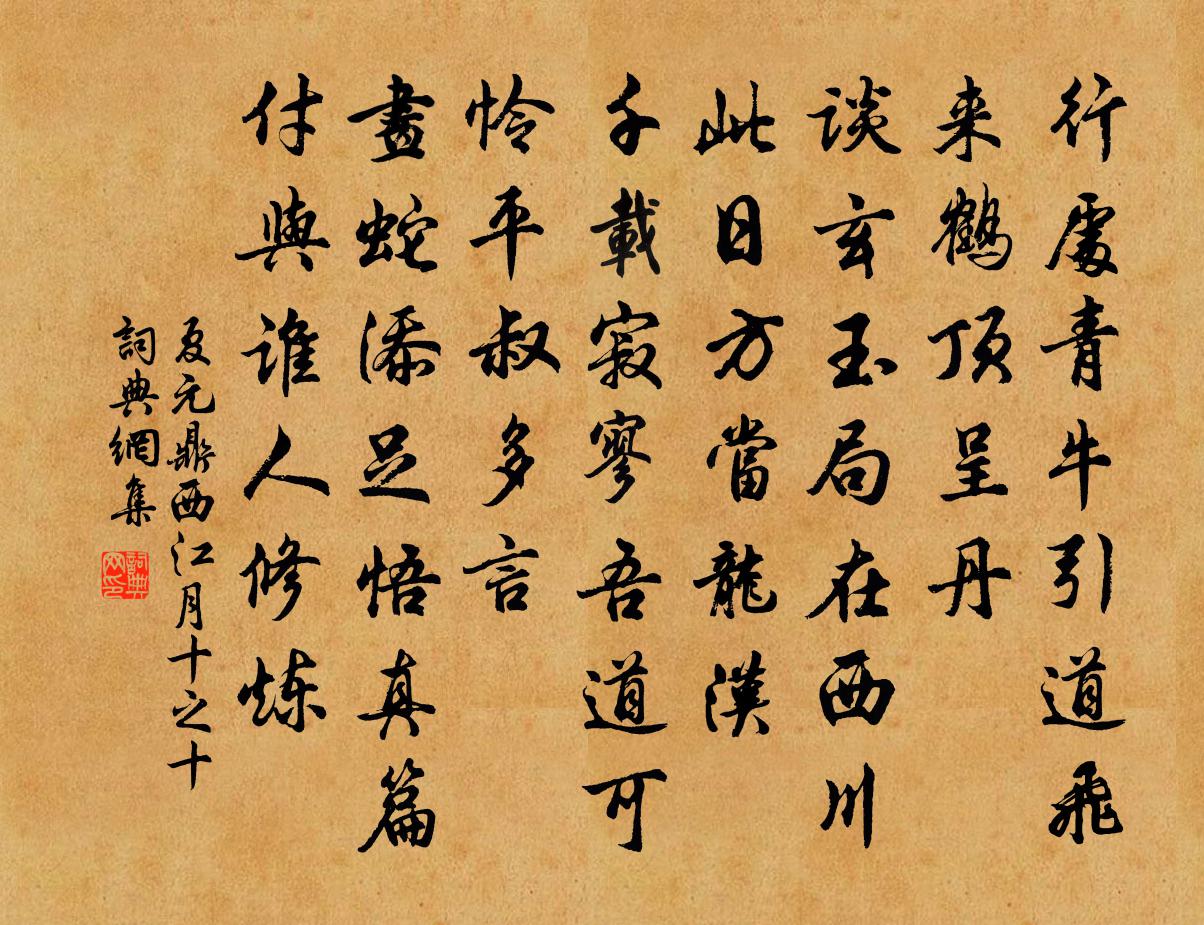 行處青牛引道飛
来鶴顶呈丹
谈玄玉局在西川
此日方當龍漢
千載寂寥吾道可
怜平叔多言
畫蛇添足悟真篇
付與谁人修炼
夏元鼎西江月十之十
詞典網集
詞典網印